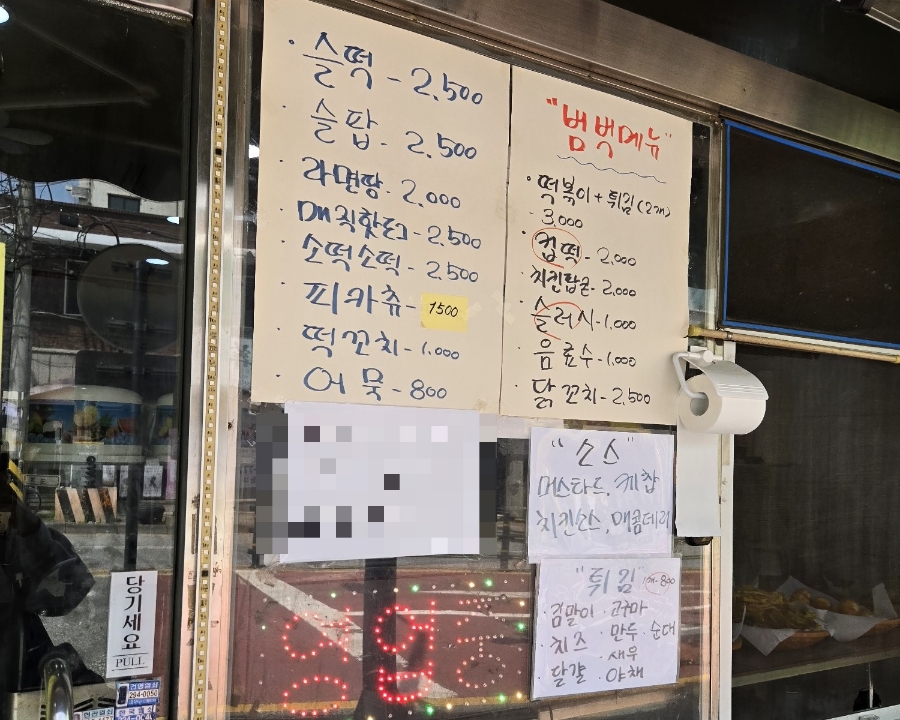 · 슬떡 - 2,500
· 슬팝 - 2,500
· 라면땅 - 2,000
· 매직핫도그 - 2,500
· 소떡소떡 - 2,500
· 피카츄 - 1500
· 떡꼬치 - 1,000
· 어묵 - 800
"범벅메뉴"
· 떡볶이 + 튀김 (2개)
- 3,000
· 컵떡 - 2,000
· 치킨팝콘 - 2,000
· 슬러시 - 1,000
· 음료수 - 1,000
· 닭꼬치 - 2,500
"소스"
머스타드, 케찹
치킨소스, 매콤데리
"튀김" 1개-800
· 김말이 · 고구마
· 치즈 · 만두 · 순대
· 달걀 · 새우
· 야채
당기세요
PULL
294-0050